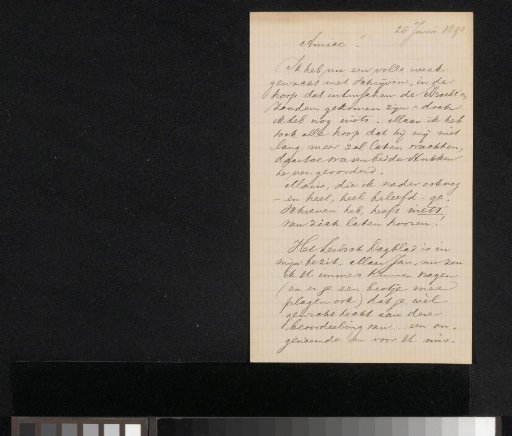 20 Juni 1890
Amice!
Ik heb nu een volle week
gewacht met schrijven, in de
hoop dat intusschen de
handen gekomen zijn - doch
ik heb nog niets. Maar ik heb
toch alle hoop dat hij mij niet
lang meer zal laten wachten,
daartoe waren beide stukken
te ver gevorderd.
Maris, die ik nader ook nog
- en heel, heel beleefd - ge-
schreven heb, heeft niets
van zich laten hooren!
Het Leidsch Dagblad is in
mijn bezit. Maar Jan, nu zou
ik U immers kunnen vragen
(en er je een beetje mee
plagen ook) dat je wel
gewicht hecht aan deze
beoordeeling van een on-
genoemde en voor U